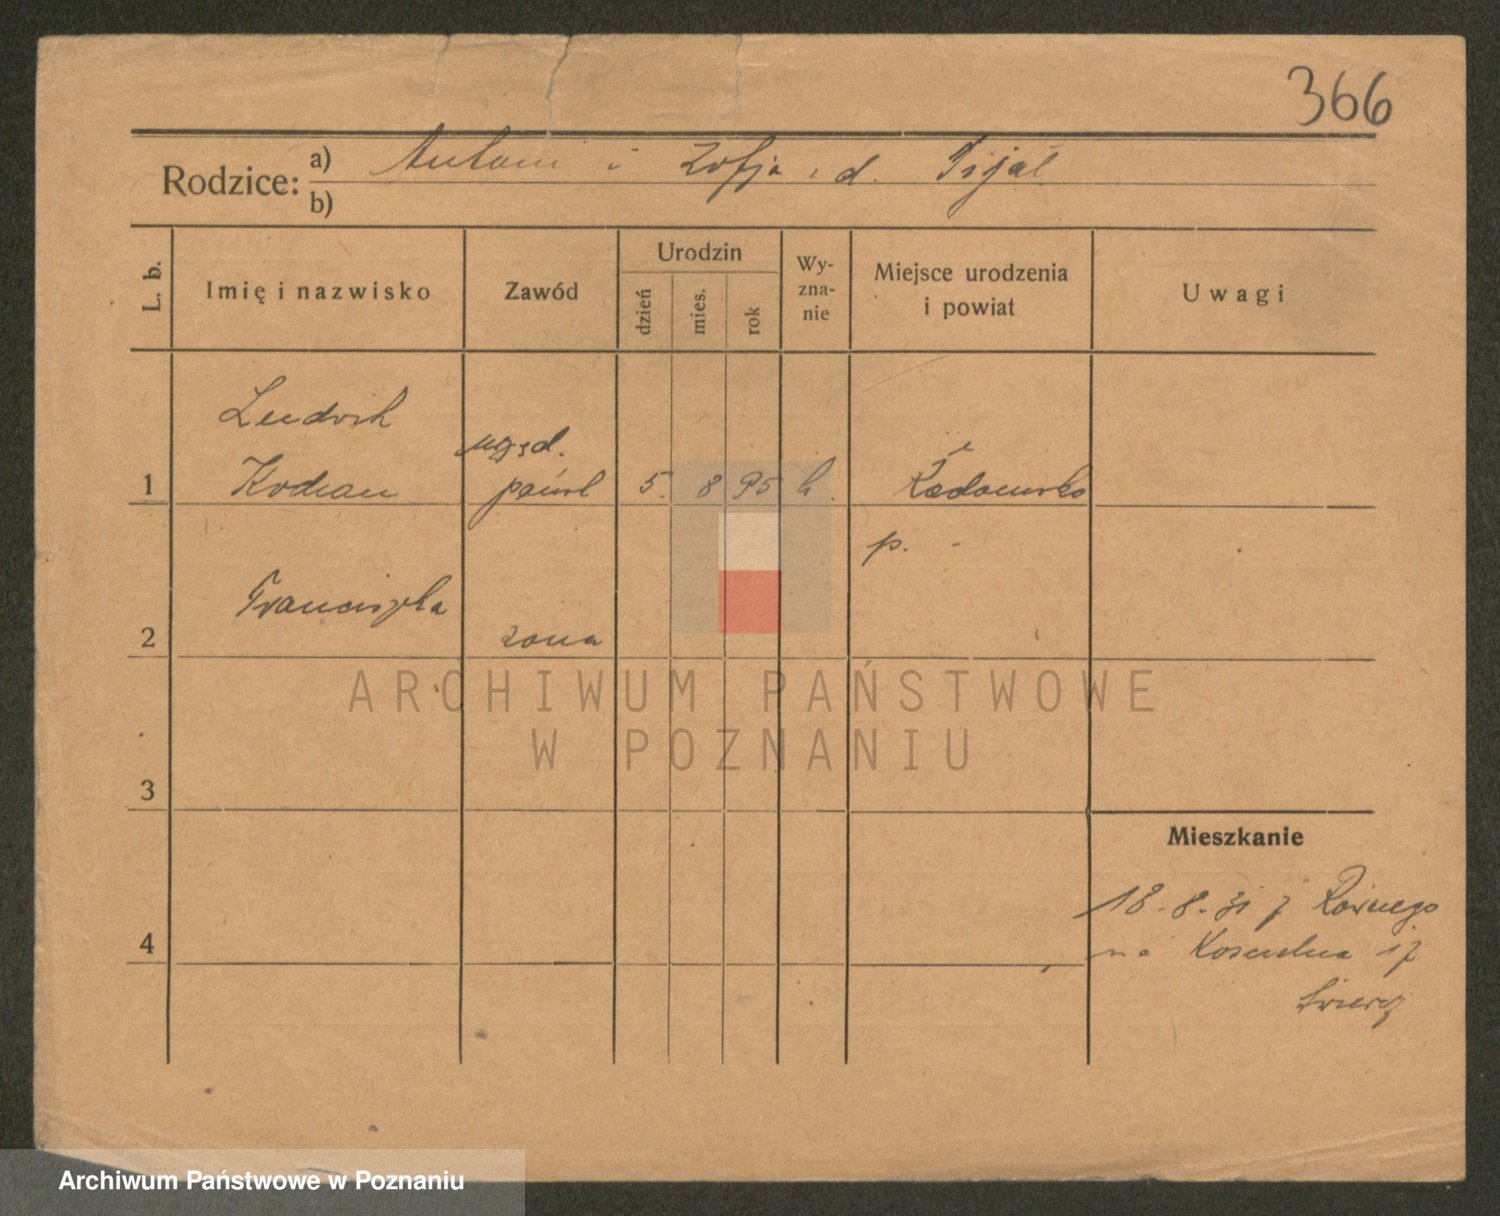 366
Rodzice: a) Antoni i Zofja z d. Fijał
b)
L. b.
Imię i nazwisko
Zawód
Urodzin
dzień
mies.
rok
Wy-
zna-
nie
Miejsce urodzenia
i powiat
Uwagi
Ludwik
urzęd.
1 Kodran państ 5. 8 95 k. Radomsko
p. -
Franciszka
2 żona
ARCHIWUM PAŃSTWOWE
W POZNANIU
3
Mieszkanie
18.8.31 z Równego
4
na Kościelna 17
Archiwum Państwowe w Poznaniu